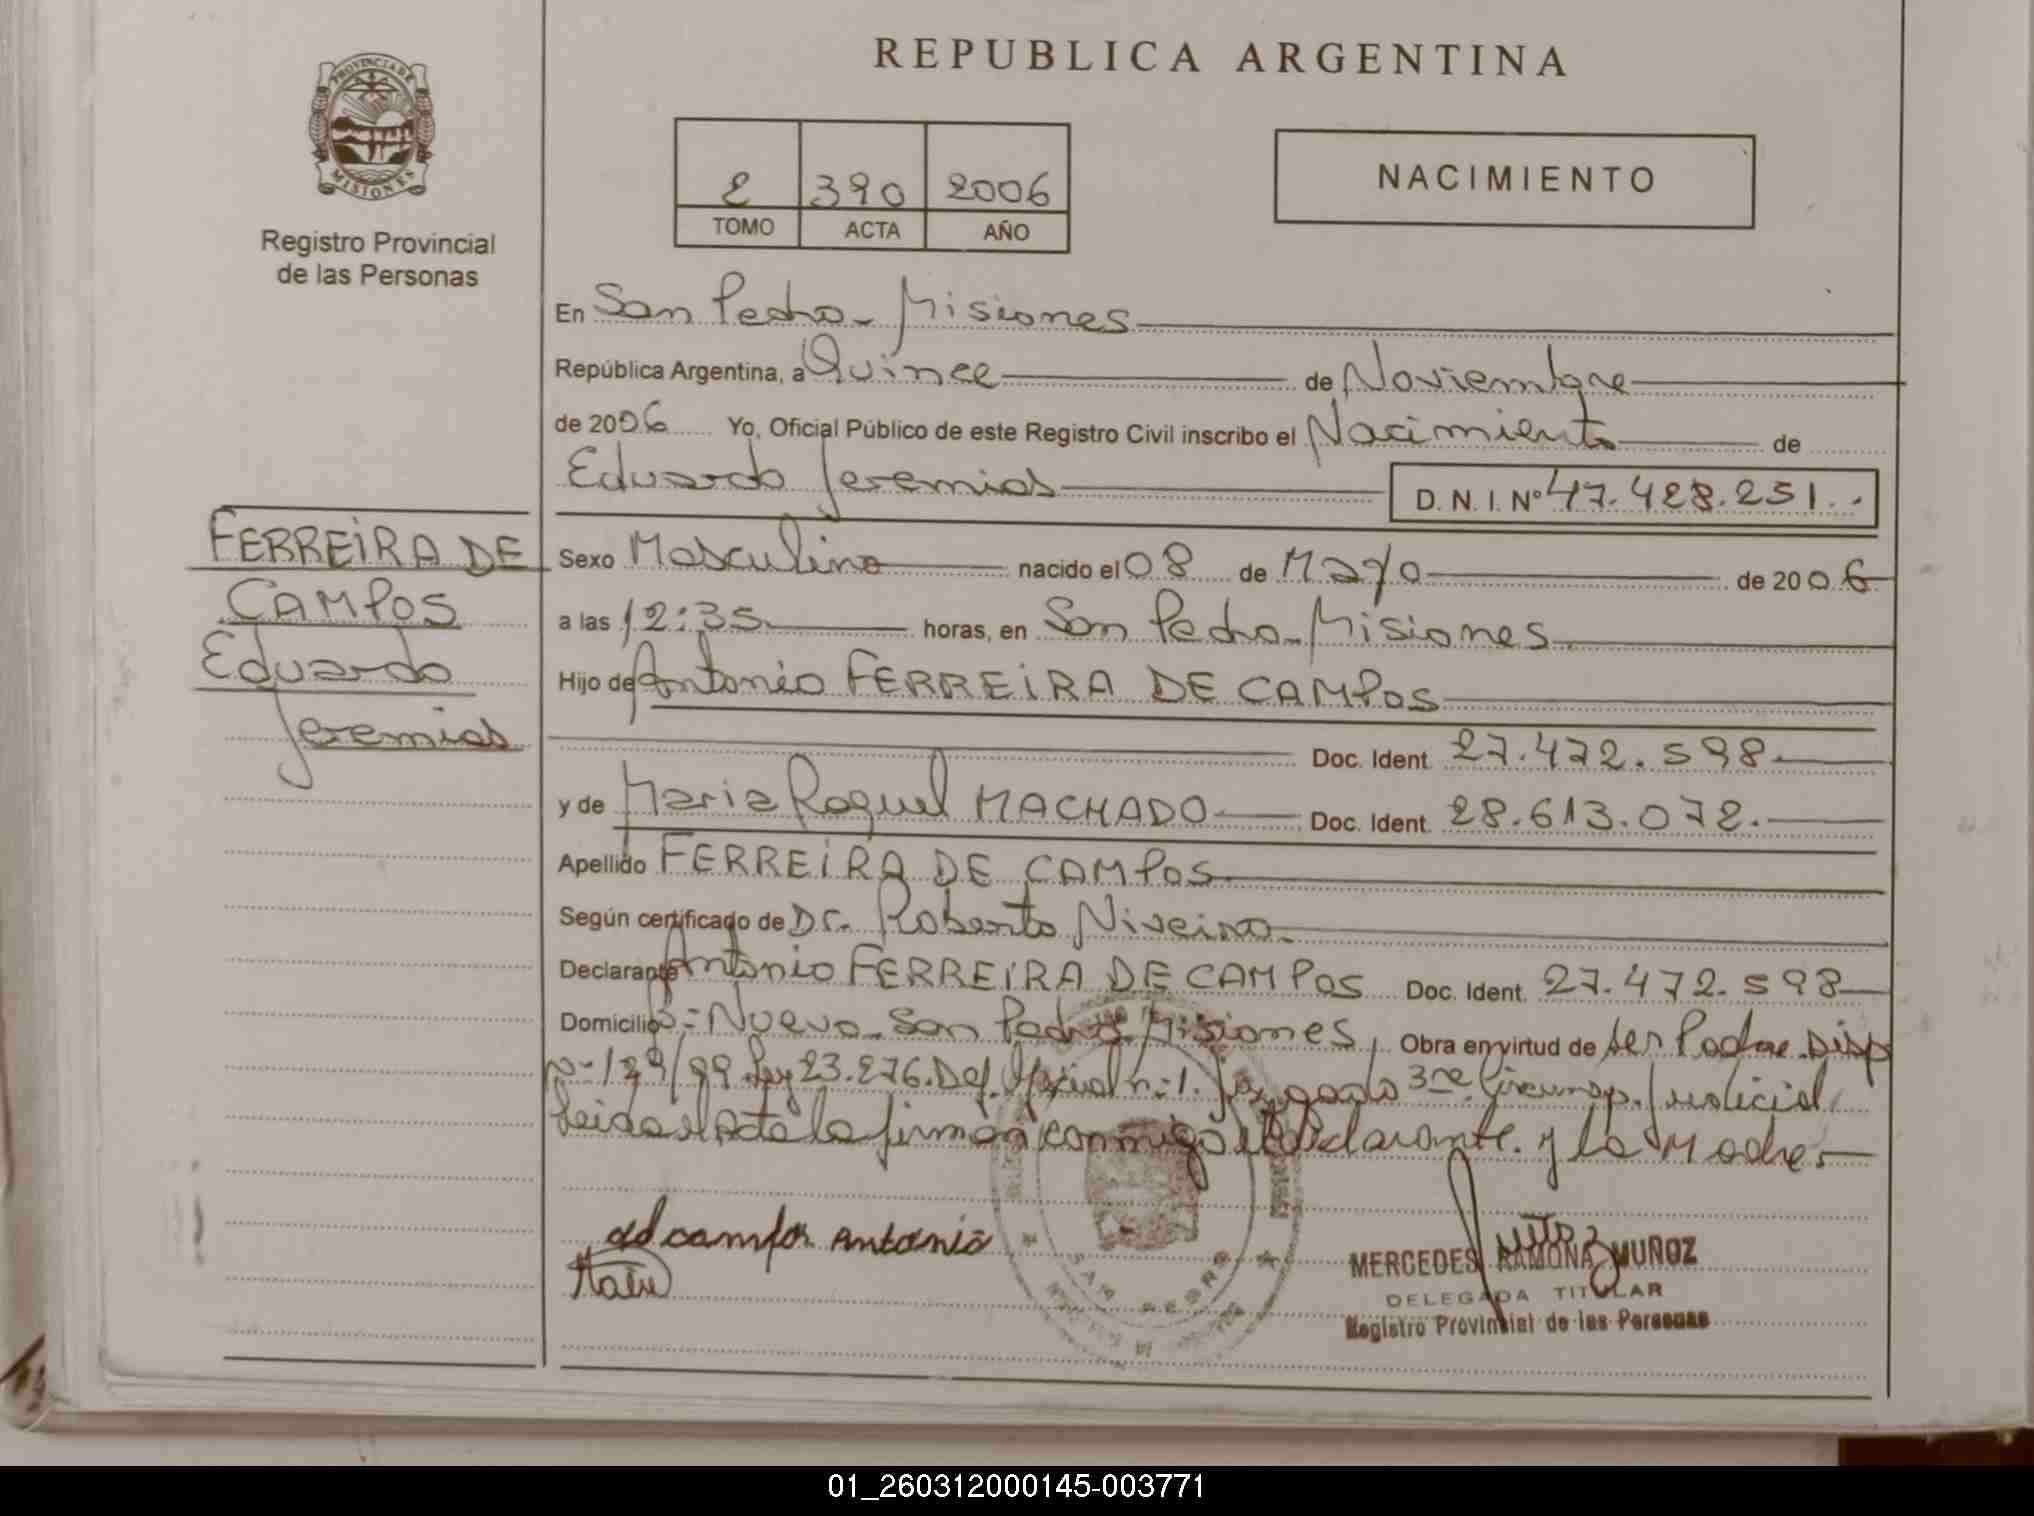 REPUBLICA ARGENTINA
PROVINCIA DE MISIONES
Registro Provincial
de las Personas
2 390 2006
TOMO ACTA AÑO
NACIMIENTO
En San Pedro - Misiones
República Argentina, a Quince de Noviembre
de 2006 Yo, Oficial Público de este Registro Civil inscribo el Nacimiento de
Eduardo Jeremias D. N. I. Nº 47.428.251..
FERREIRA DE
CAMPOS
Eduardo
Jeremias
Sexo Masculino nacido el 08 de Mayo de 2006
a las 12:35 horas, en San Pedro - Misiones
Hijo de Antonio FERREIRA DE CAMPOS
Doc. Ident. 27.472.598
y de Maria Raquel MACHADO Doc. Ident. 28.613.072.
Apellido FERREIRA DE CAMPOS
Según certificado de Dr. Roberto Niveiro
Declarante Antonio FERREIRA DE CAMPOS Doc. Ident. 27.472.598
Domicilio Bº= Nuevo - San Pedro Misiones, Obra en virtud de ser Padre. Disp
nº 129/99. Ley 23.276. Def. Oficial n:1. Juzgado 3ra. Circunsp. Judicial
Leida el Acta la firman conmigo el declarante. y la Madre.
de campos Antonio
MERCEDES RAMONA MUÑOZ
DELEGADA TITULAR
Registro Provincial de las Personas
SAN PEDRO
01_260312000145-003771